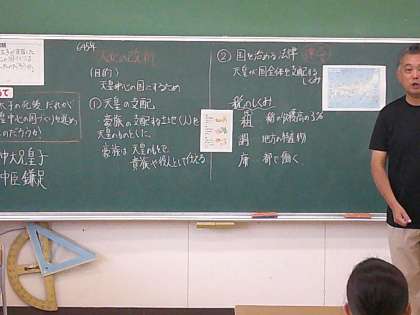 645年 大化の改新
(目的)
天皇中心の国にするため
① 天皇の支配
豪族の支配する土地と(人)を
天皇のものとした。
豪族は天皇のもとで、
貴族や役人として仕える
② 国を治める法律(律令)
天皇が国全体を支配する
しくみ
税のしくみ
租 稲の収穫高の3%
調 地方の特産物
庸 都で働く
太子の死後、だれがど
天皇中心の国づくりを進め
のだろうか?
中大兄皇子
中臣鎌足